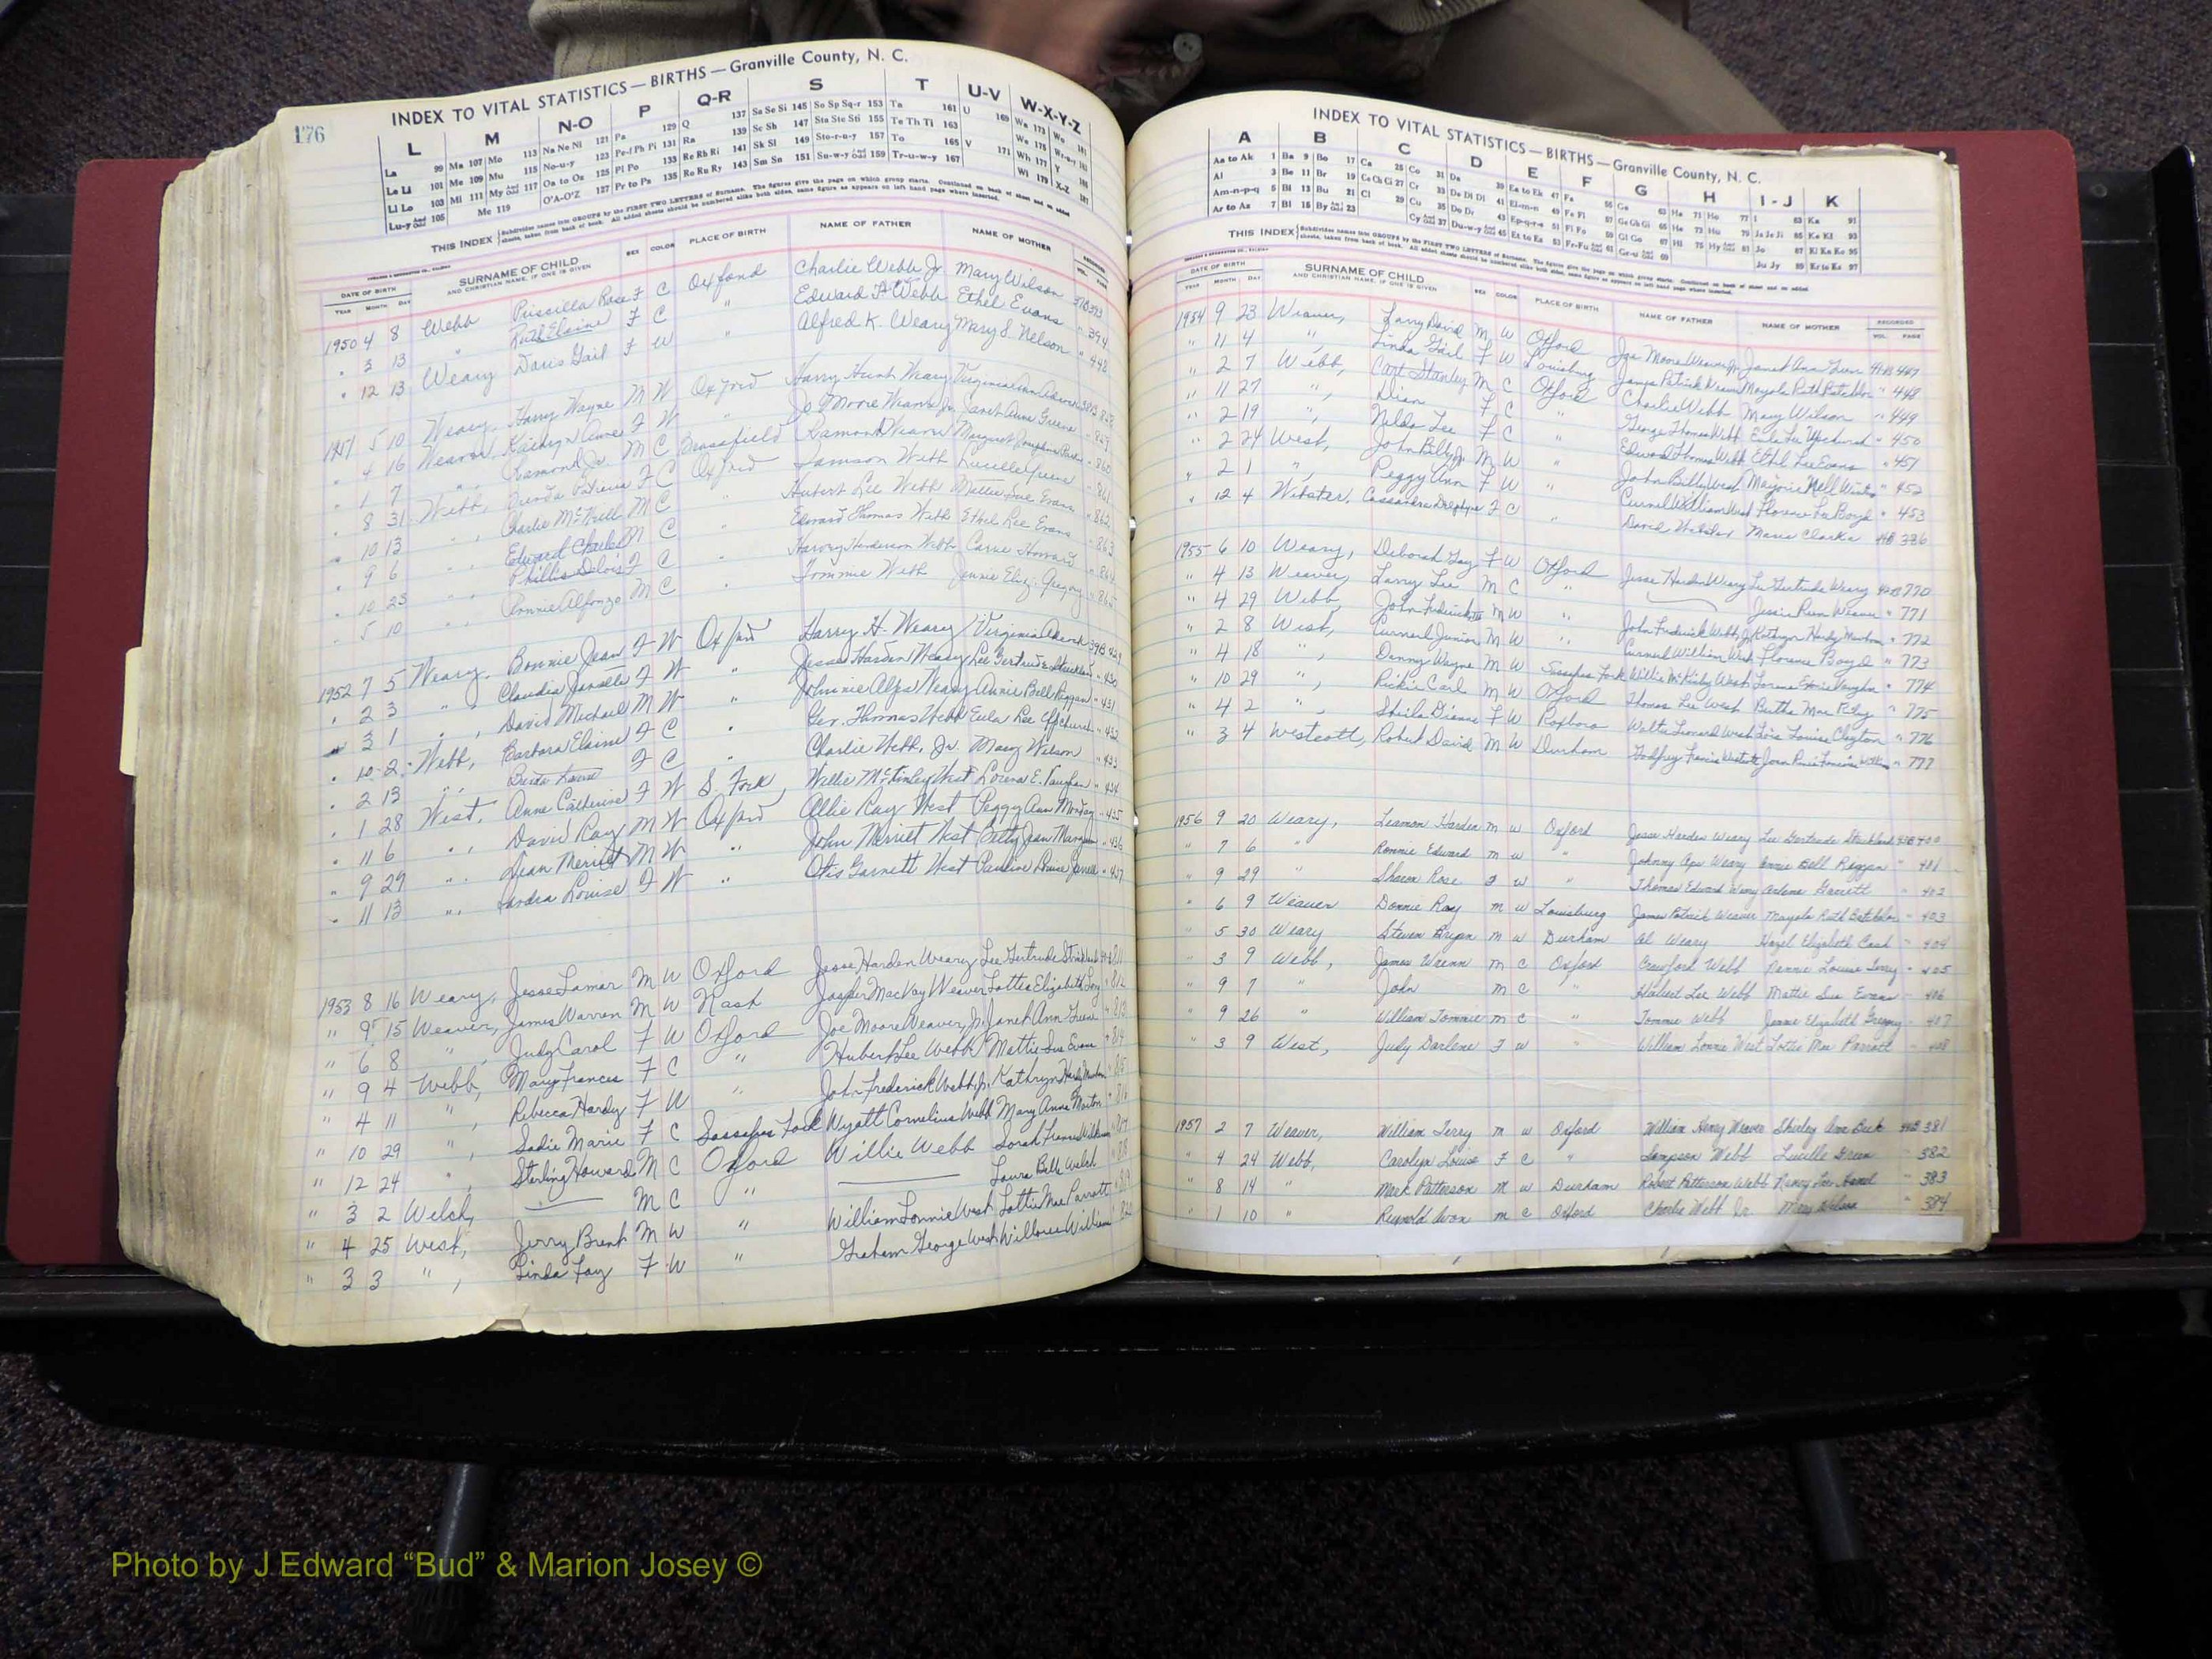 176
INDEX TO VITAL STATISTICS — BIRTHS — Granville County, N. C.
L M N-O P Q-R S T U-V W-X-Y-Z
La 99 Ma 107 Mo 113 Na Ne Ni 121 Pa 129 Q 137 Sa Se Si 145 So Sp Sq-r 153 Ta 161 U 169 Wa 173 Wo 181
Le Li 101 Me 109 Mu 115 No-u-y 123 Pe-f Ph Pi 131 Ra 139 Sc Sh 147 Sta Ste Sti 155 Te Th Ti 163 We 175
Ll Lo 103 Mi 111 My 117 Oa to Oz 125 Pl Po 133 Re Rh Ri 141 Sk Sl 149 Sto-r-u-y 157 To 165 V 171 Wh 177 Y
Lu-y 105 Mc 119 O'A-O'Z 127 Pr to Ps 135 Ro Ru Ry 143 Sm Sn 151 Su-w-y 159 Tr-u-w-y 167 Wi 179 X-Z 187
THIS INDEX Subdivides names into GROUPS by the FIRST TWO LETTERS of Surname. The figures give the page on which group starts. Continued on back of sheet and on added sheets, taken from back of book. All added sheets should be numbered alike both sides, same figure as appears on left hand page where inserted.
DATE OF BIRTH SURNAME OF CHILD SEX COLOR PLACE OF BIRTH NAME OF FATHER NAME OF MOTHER RECORDED
YEAR MONTH DAY AND CHRISTIAN NAME, IF ONE IS GIVEN VOL. PAGE
1950 4 8 Webb Priscilla Rose F C Oxford Charlie Webb Jr Mary Wilson
" 3 13 " Ruth Elaine F C " Edward T. Webb Ethel Evans " 394
" 12 13 Weary Doris Gail F W " Alfred K. Weary Mary S. Nelson " 448
1951 5 10 Weary, Harry Wayne M W Oxford Harry Hunt Weary Virginia Ann
" 4 16 Weaver, Kathryn Anne F W " Jo Moore Weaver Jr. Janet Anne Greene
" 1 7 " Ramond Jr. M C Brassfield Ramond Weaver Margaret
" 8 31 Webb, Patricia F C Oxford Samson Webb Lucille Greene
" 10 13 " Charlie McNeill M C " Hubert Lee Webb Mattie Sue Evans " 862
" 9 6 " Edward Charles M C Edward Thomas Webb Ethel Lee Evans " 863
" 10 23 " Phillis Delois F C " Harvey Henderson Webb Carrie Howard
" 5 10 " Ronnie Alfonzo M C " Tommie Webb Jennie Eliz. Gregory
1952 7 5 Weary, Bonnie Jean F W Oxford Harry H. Weary Virginia
" 2 3 " Claudia Janette F W " Jesse Harden Weary Lee Gertrude Strickland " 430
" 3 1 " David Michael M W " Johnnie Alps Weary Annie Bell Ragan " 431
" 10 2 Webb, Barbara Elaine F C Geo. Thomas Webb Eula Lee Upchurch " 432
" 2 13 " F C " Charlie Webb, Jr. Mary Wilson " 433
" 1 28 West, Anne Catherine F W S. Fork, Willie McKinley West Lorena E. Vaughan " 434
" 11 6 " David Ray M W Oxford Allie Ray West Peggy Ann " 435
" 9 29 " Dean Merritt M W " John Merritt West Betty Jean " 436
" 11 13 " Sandra Louise F W " Otis Garnett West Pauline " 437
1953 8 16 Weary, Jesse Lamar M W Oxford Jesse Harden Weary Lee Gertrude Strickland
" 9 15 Weaver, James Warren M W Nash Jasper MacVay Weaver Lottie Elizabeth Long " 812
" 6 8 " Judy Carol F W Oxford Joe Moore Weaver, Jr. Janet Ann Green " 813
" 9 4 Webb, Mary Frances F C " Hubert Lee Webb Mattie Sue Evans " 814
" 4 11 " Rebecca Hardy F W " John Frederick Webb, Jr. Kathryn Hardy " 815
" 10 29 " Sadie Marie F C Sassafras Fork Wyatt Cornelius Webb Mary Anna Norton " 816
" 12 24 " Sterling Howard M C Oxford Willie Webb Sarah Frances
" 3 2 Welch, — M C " — Laura Bell Welch
" 4 25 West, Jerry Brent M W " William Lonnie West Lottie Mae Parrott
" 3 3 ", Linda Fay F W " Graham George West
INDEX TO VITAL STATISTICS — BIRTHS — Granville County, N. C.
A B C D E F G H I - J K
Aa to Ak 1 Ba 9 Bo 17 Ca 25 Co 31 Da 39 Ea to Ek 47 Fa 55 Ga 63 Ha 71 Ho 77 I 83 Ka 91
Al 3 Be 11 Br 19 Ce Ch Ci 27 Cr 33 De Di Dl 41 El-m-n 49 Fe Fi 57 Ge Gh Gi 65 He 73 Hu 79 Ja Je Ji 85 Ke Kl 93
Am-n-p-q 5 Bi 13 Bu 21 Cl 29 Cu 35 Do Dr 43 Ep-q-r-s 51 Fl Fo 59 Gl Go 67 Hi 75 Hy 81 Jo 87 Ki Kn Ko 95
Ar to Az 7 Bl 15 By 23 Cy 37 Du-w-y 45 Et to Ez 53 Fr-Fu 61 Gr-u 69 Ju Jy 89 Kr to Kz 97
THIS INDEX Subdivides names into GROUPS by the FIRST TWO LETTERS of Surname. The figures give the page on which group starts. Continued on back of sheet and on added sheets, taken from back of book. All added sheets should be numbered alike both sides, same figure as appears on left hand page where inserted.
DATE OF BIRTH SURNAME OF CHILD SEX COLOR PLACE OF BIRTH NAME OF FATHER NAME OF MOTHER RECORDED
YEAR MONTH DAY AND CHRISTIAN NAME, IF ONE IS GIVEN VOL. PAGE
1954 9 23 Weaver, Larry David M W Oxford Joe Moore Weaver Jr Janet Ann Green 447
" 11 4 " Linda Gail F W Louisburg James Patrick Weaver Mayola Ruth Batchelor " 448
" 2 7 Webb, Carl Stanley M C Oxford Charlie Webb Mary Wilson " 449
" 11 27 ", Dian F C " George Thomas Webb Eula Lee Upchurch " 450
" 2 19 ", Nilda Lee F C " Edward Thomas Webb Ethel Lee Evans " 451
" 2 24 West, John Billy Jr M W " John Billy West Marjorie Nell " 452
" 2 1 ", Peggy Ann F W " Curnel William West Florence Lee Boyd " 453
" 12 4 Webster, Cassandra F C " David Webster Marie Clarke 336
1955 6 10 Weary, Deborah Gay F W Oxford Jesse Harden Weary Lee Gertrude Weary 770
" 4 13 Weaver, Larry Lee M C " — Jessie Weaver " 771
" 4 29 Webb, John Frederick M W " John Fredrick Webb, Jr Kathryn Hardy " 772
" 2 8 West, Curnel Junior M W " Curnel William West Florence Boyd " 773
" 4 18 ", Danny Wayne M W Sassafras Fork Willie McKinley West Lorena Vaughn " 774
" 10 29 ", Rickie Carl M W Oxford Thomas Lee West Bertha Mae Riley " 775
" 4 2 ", Sheila Dianne F W Roxboro Walter Leonard West Lois Louise Clayton " 776
" 3 4 Westcott, Robert David M W Durham Godfrey Francis Westcott Joan " 777
1956 9 20 Weary, Leamon Harden M W Oxford Jesse Harden Weary Lee Gertrude Strickland 43B 400
" 7 6 " Ronnie Edward M W " Johnny Weary Annie Bell Ragan " 401
" 9 29 " Sharon Rose F W " Thomas Edward Weary Arlene Garrett " 402
" 6 9 Weaver Donnie Ray M W Louisburg James Patrick Weaver Mayola Ruth Batchelor " 403
" 5 30 Weary Steven Bryan M W Durham Al Weary Hazel Elizabeth Cash " 404
" 3 9 Webb, James Wrenn M C Oxford Crawford Webb Rennie Louise Terry " 405
" 9 7 " John M C " Hubert Lee Webb Mattie Sue Evans " 406
" 9 26 " William Tommie M C " Tommie Webb Jennie Elizabeth Gregory " 407
" 3 9 West, Judy Darlene F W " William Lonnie West Lottie Mae Parrott " 408
1957 2 7 Weaver, William Terry M W Oxford William Henry Weaver Shirley Ann 44B 381
" 4 24 Webb, Carolyn Louise F C " Sampson Webb Lucille Green " 382
" 8 14 " Mark Patterson M W Durham Robert Patterson Webb Nancy " 383
" 1 10 " Reynold Avon M C Oxford Charlie Webb Jr. Mary Wilson " 384
Photo by J Edward “Bud” & Marion Josey ©